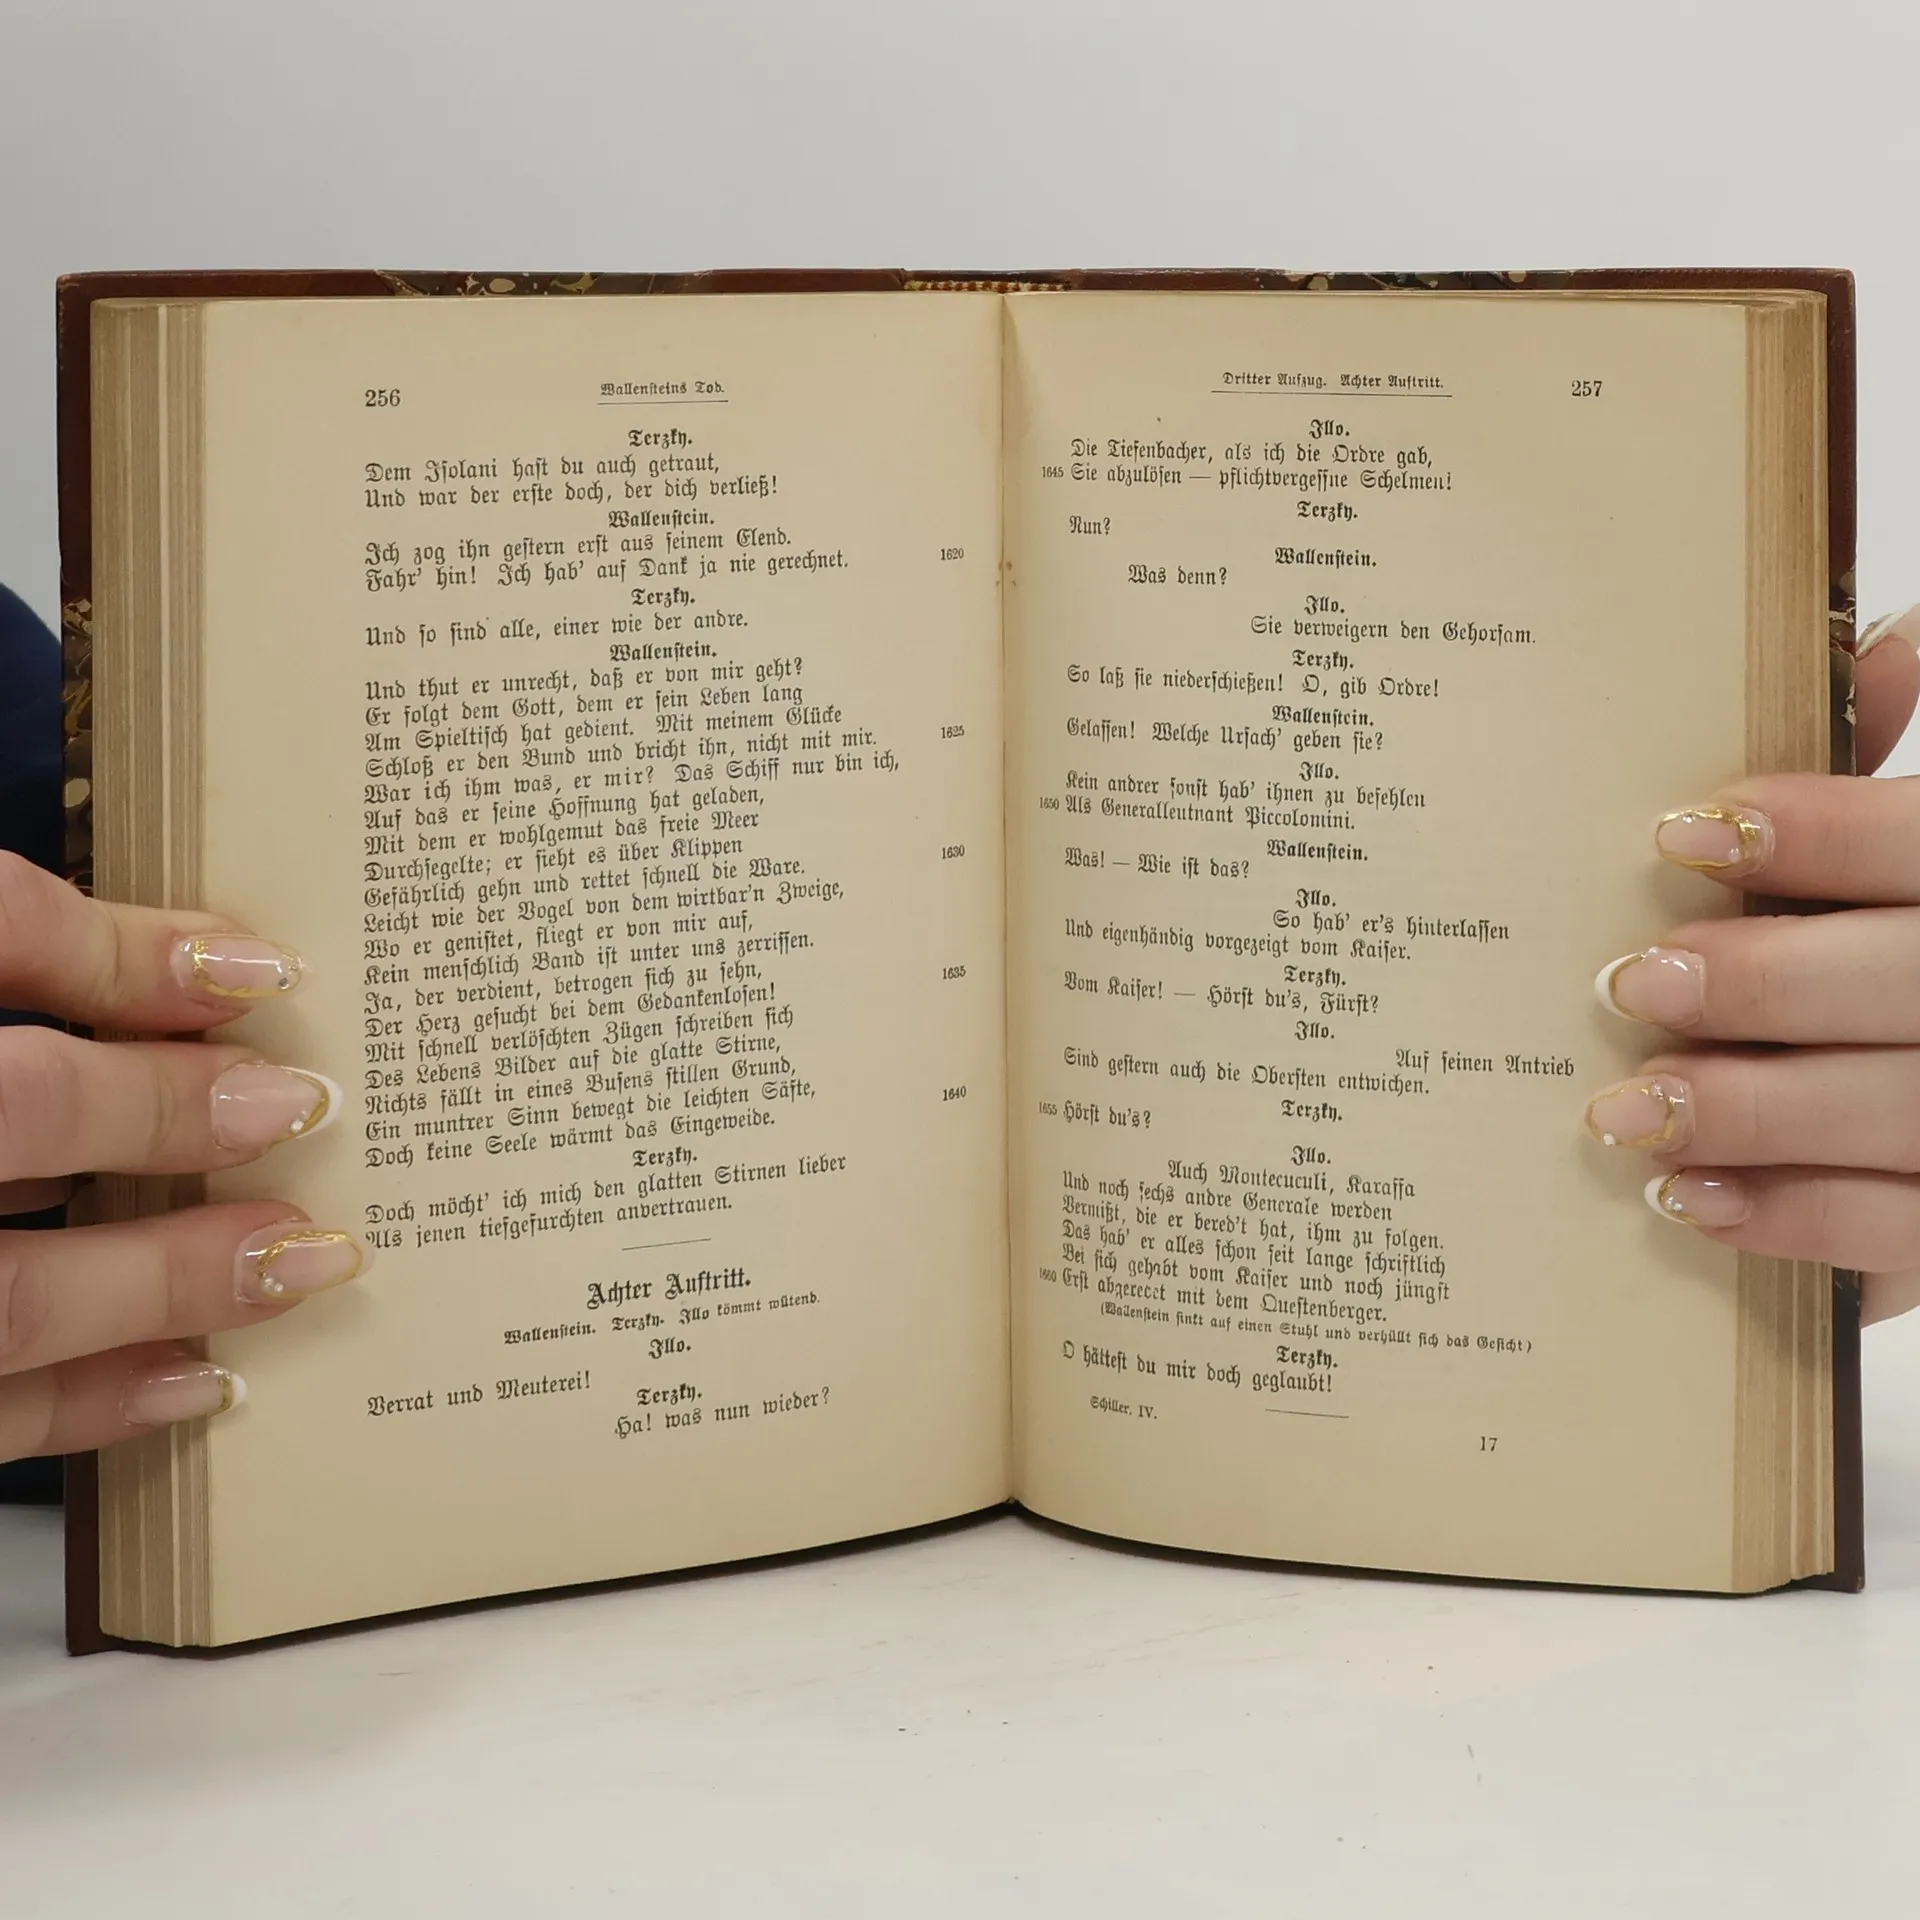 256
Wallensteins Tod.
Terzky.
Dem Isolani hast du auch getraut,
Und war der erste doch, der dich verließ!
Wallenstein.
Ich zog ihn gestern erst aus seinem Elend.
Fahr' hin! Ich hab' auf Dank ja nie gerechnet. 1620
Terzky.
Und so sind alle, einer wie der andre.
Wallenstein.
Und thut er unrecht, daß er von mir geht?
Er folgt dem Gott, dem er sein Leben lang
Am Spieltisch hat gedient. Mit meinem Glücke
Schloß er den Bund und bricht ihn, nicht mit mir. 1625
War ich ihm was, er mir? Das Schiff nur bin ich,
Auf das er seine Hoffnung hat geladen,
Mit dem er wohlgemut das freie Meer
Durchsegelte; er sieht es über Klippen
Gefährlich gehn und rettet schnell die Ware. 1630
Leicht wie der Vogel von dem wirtbar'n Zweige,
Wo er genistet, fliegt er von mir auf,
Kein menschlich Band ist unter uns zerrissen.
Ja, der verdient, betrogen sich zu sehn,
Der Herz gesucht bei dem Gedankenlosen! 1635
Mit schnell verlöschten Zügen schreiben sich
Des Lebens Bilder auf die glatte Stirne,
Nichts fällt in eines Busens stillen Grund,
Ein muntrer Sinn bewegt die leichten Säfte,
Doch keine Seele wärmt das Eingeweide. 1640
Terzky.
Doch möcht' ich mich den glatten Stirnen lieber
Als jenen tiefgefurchten anvertrauen.
Achter Auftritt.
Wallenstein. Terzky. Illo kömmt wütend.
Illo.
Verrat und Meuterei!
Terzky.
Ha! was nun wieder?
Dritter Aufzug. Achter Auftritt.
257
Illo.
Die Tiefenbacher, als ich die Ordre gab,
1645 Sie abzulösen — pflichtvergessne Schelmen!
Terzky.
Nun?
Wallenstein.
Was denn?
Illo.
Sie verweigern den Gehorsam.
Terzky.
So laß sie niederschießen! O, gib Ordre!
Wallenstein.
Gelassen! Welche Ursach' geben sie?
Illo.
Kein andrer sonst hab' ihnen zu befehlen
1650 Als Generalleutnant Piccolomini.
Wallenstein.
Was! — Wie ist das?
Illo.
So hab' er's hinterlassen
Und eigenhändig vorgezeigt vom Kaiser.
Terzky.
Vom Kaiser! — Hörst du's, Fürst?
Illo.
Auf seinen Antrieb
Sind gestern auch die Obersten entwichen.
Terzky.
1655 Hörst du's?
Illo.
Auch Montecuculi, Karaffa
Und noch sechs andre Generale werden
Vermißt, die er bered't hat, ihm zu folgen.
Das hab' er alles schon seit lange schriftlich
Bei sich gehabt vom Kaiser und noch jüngst
1660 Erst abgeredet mit dem Questenberger.
(Wallenstein sinkt auf einen Stuhl und verhüllt sich das Gesicht)
Terzky.
O hättest du mir doch geglaubt!
Schiller. IV.
17